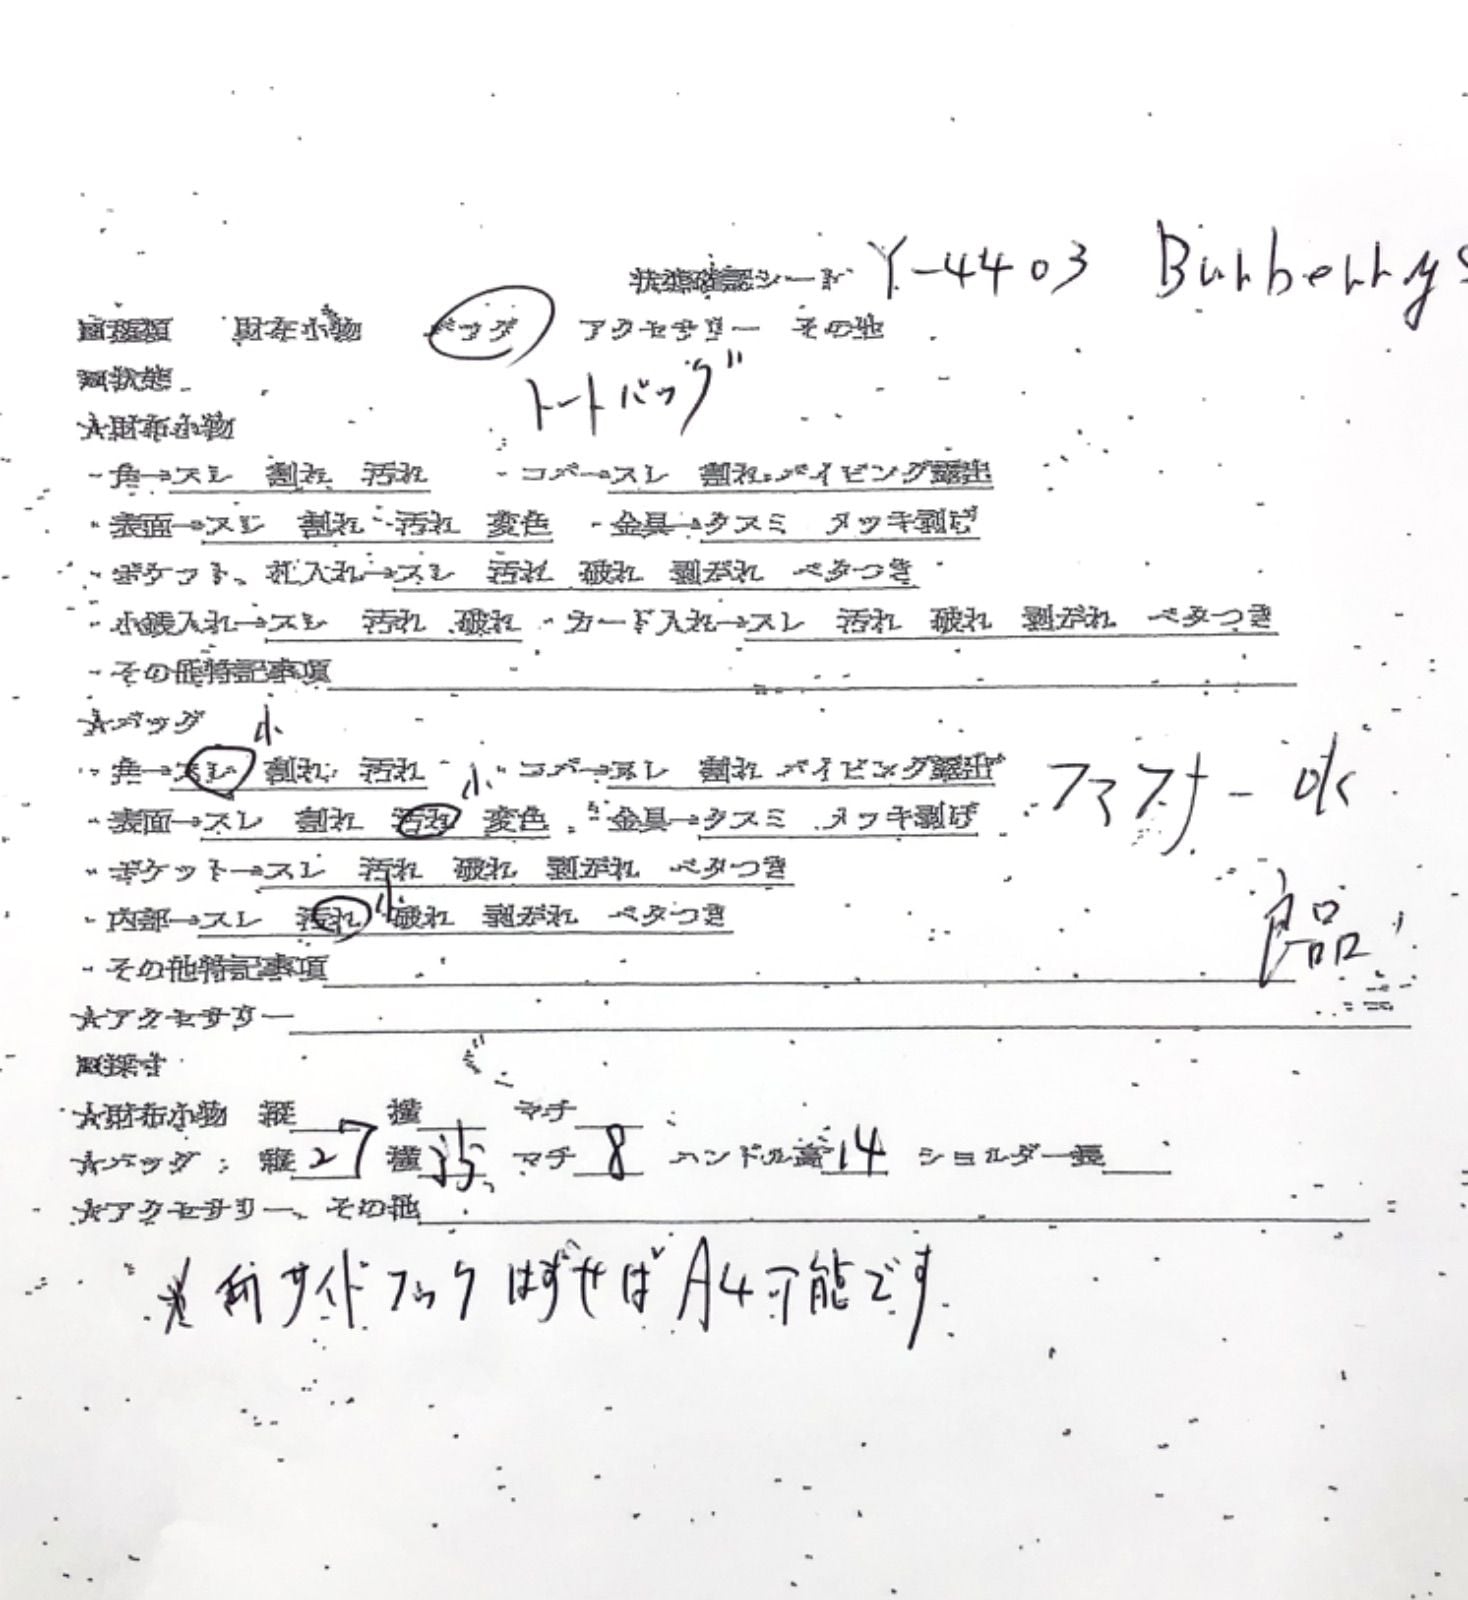 状態確認シート Y-4403 Burberrys
■種類 財布小物 バッグ アクセサリー その他
■状態
トートバッグ
★財布小物
・角→スレ 割れ 汚れ ・コバ→スレ 割れ パイピング露出
・表面→スレ 割れ 汚れ 変色 ・金具→クスミ メッキ剥げ
・ポケット、札入れ→スレ 汚れ 破れ 剥がれ ベタつき
・小銭入れ→スレ 汚れ 破れ ・カード入れ→スレ 汚れ 破れ 剥がれ ベタつき
・その他特記事項
★バッグ
小
・角→スレ 割れ 汚れ ・コバ→スレ 割れ パイピング露出
小
・表面→スレ 割れ 汚れ 変色 ・金具→クスミ メッキ剥げ ファスナー ok
・ポケット→スレ 汚れ 破れ 剥がれ ベタつき
・内部→スレ 汚れ 小 破れ 剥がれ ベタつき 良品
・その他特記事項
★アクセサリー
■採寸
★財布小物 縦 横 マチ
★バッグ 縦27 横35 マチ8 ハンドル高14 ショルダー長
★アクセサリー、その他
サイドフックはずせばA4可能です